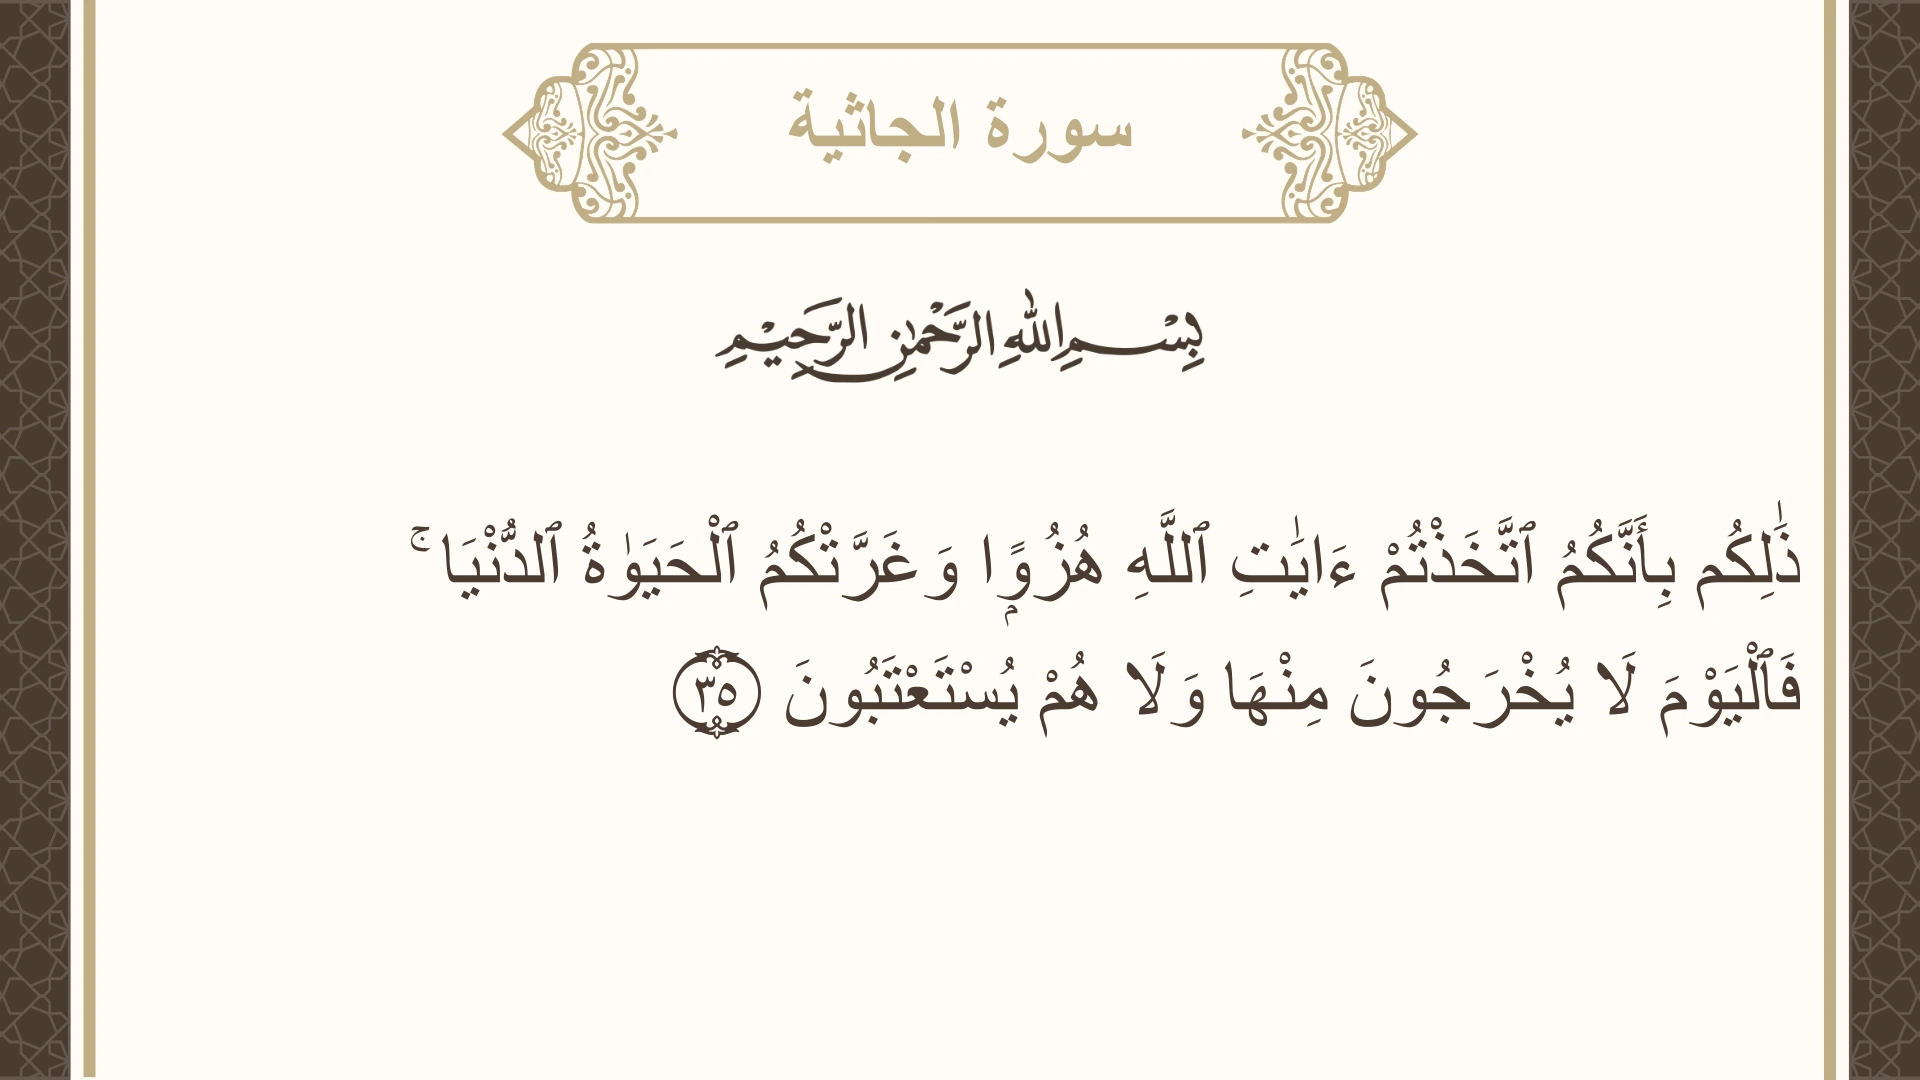 سورة الجاثية
بِسْمِ اللهِ الرَّحْمٰنِ الرَّحِيْمِ
ذَٰلِكُم بِأَنَّكُمُ ٱتَّخَذْتُمْ ءَايَٰتِ ٱللَّهِ هُزُوًۭا وَغَرَّتْكُمُ ٱلْحَيَوٰةُ ٱلدُّنْيَا ۚ
فَٱلْيَوْمَ لَا يُخْرَجُونَ مِنْهَا وَلَا هُمْ يُسْتَعْتَبُونَ ٣٥